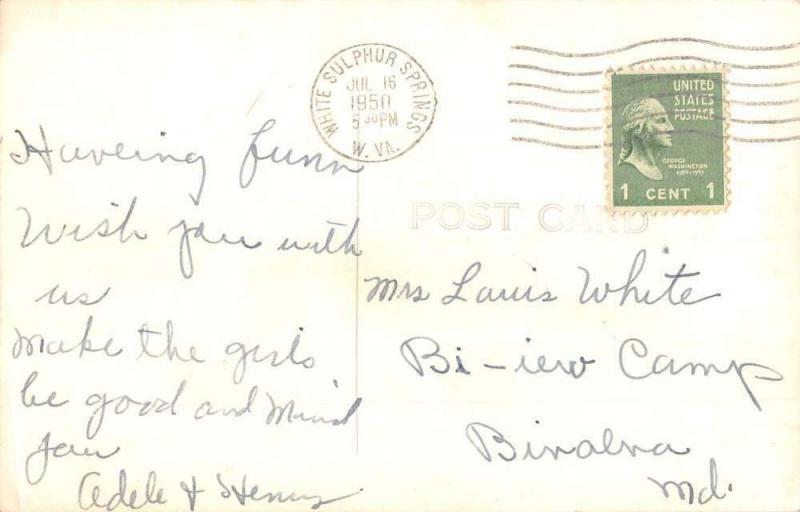 WHITE SULPHUR SPRINGS
JUL 16
1950
5 30 PM
W. VA.
UNITED
STATES
POSTAGE
GEORGE
WASHINGTON
1789-1797
1 CENT 1
POST CARD
Haveing funn
Wish you with
us
Make the girls
be good and Mind
you
Adele & Henry
Mrs Louis White
Bi-iew Camp
Md.